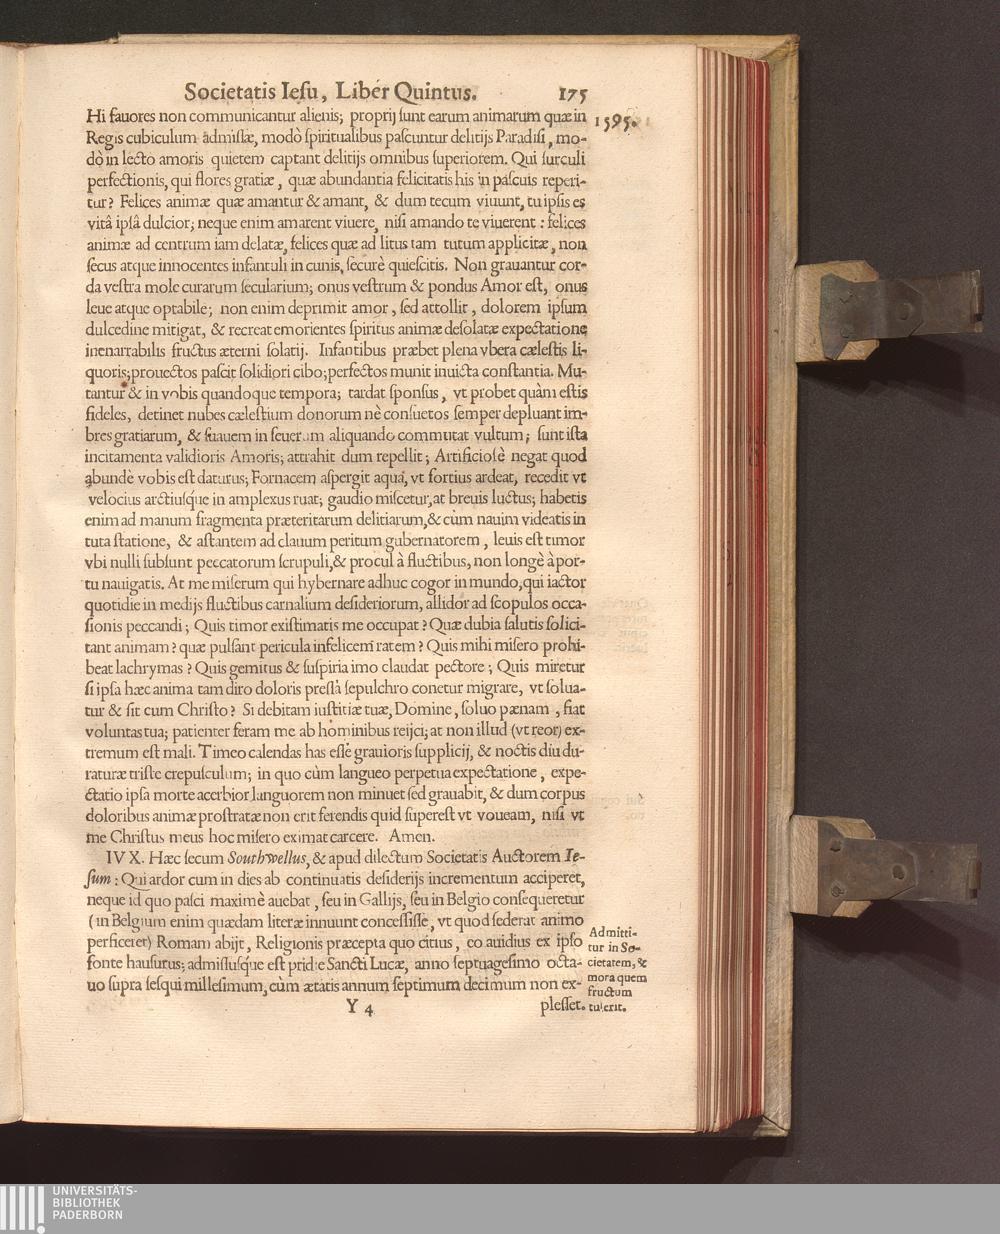 Societatis Iesu, Liber Quintus. 175
1595.
Hi fauores non communicantur alienis; proprij sunt earum animarum quæ in
Regis cubiculum admissæ, modò spiritualibus pascuntur delitijs Paradisi, mo-
dò in lecto amoris quietem captant delitijs omnibus superiorem. Qui surculi
perfectionis, qui flores gratiæ, quæ abundantia felicitatis his in pascuis reperi-
tur? Felices animæ quæ amantur & amant, & dum tecum viuunt, tu ipsis es
vitâ ipsâ dulcior; neque enim amarent viuere, nisi amando te viuerent: felices
animæ ad centrum iam delatæ, felices quæ ad litus tam tutum applicitæ, non
secus atque innocentes infantuli in cunis, securè quiescitis. Non grauantur cor-
da vestra mole curarum secularium; onus vestrum & pondus Amor est, onus
leue atque optabile; non enim deprimit amor, sed attollit, dolorem ipsum
dulcedine mitigat, & recreat emorientes spiritus animæ desolatæ expectatione
inenarrabilis fructus æterni solatij. Infantibus præbet plena vbera cælestis li-
quoris; prouectos pascit solidiori cibo; perfectos munit inuicta constantia. Mu-
tantur & in vobis quandoque tempora; tardat sponsus, vt probet quàm estis
fideles, detinet nubes cælestium donorum nè consuetos semper depluant im-
bres gratiarum, & suauem in seuerum aliquando commutat vultum; sunt ista
incitamenta validioris Amoris; attrahit dum repellit; Artificiosè negat quod
abundè vobis est daturus; Fornacem aspergit aquâ, vt fortius ardeat, recedit vt
velocius arctiusq́ue in amplexus ruat; gaudio miscetur, at breuis luctus; habetis
enim ad manum fragmenta præteritarum delitiarum, & cùm nauim videatis in
tuta statione, & astantem ad clauum peritum gubernatorem, leuis est timor
vbi nulli subsunt peccatorum scrupuli, & procul à fluctibus, non longè à por-
tu nauigatis. At me miserum qui hybernare adhuc cogor in mundo, qui iactor
quotidie in medijs fluctibus carnalium desideriorum, allidor ad scopulos occa-
sionis peccandi; Quis timor existimatis me occupat? Quæ dubia salutis solici-
tant animam? quæ pulsant pericula infelicem ratem? Quis mihi misero prohi-
beat lachrymas? Quis gemitus & suspiria imo claudat pectore; Quis miretur
si ipsa hæc anima tam diro doloris pressa sepulchro conetur migrare, vt solua-
tur & sit cum Christo? Si debitam iustitiæ tuæ, Domine, soluo pænam, fiat
voluntas tua; patienter feram me ab hominibus reijci; at non illud (vt reor) ex-
tremum est mali. Timeo calendas has esse grauioris supplicij, & noctis diu du-
raturæ triste crepusculum; in quo cùm langueo perpetua expectatione, expe-
ctatio ipsa morte acerbior languorem non minuet sed grauabit, & dum corpus
doloribus animæ prostratæ non erit ferendis quid superest vt voueam, nisi vt
me Christus meus hoc misero eximat carcere. Amen.
IV X. Hæc secum Southwellus, & apud dilectum Societatis Auctorem Ie-
sum: Qui ardor cum in dies ab continuatis desiderijs incrementum acciperet,
neque id quo pasci maximè auebat, seu in Gallijs, seu in Belgio consequeretur
(in Belgium enim quædam literæ innuunt concessisse, vt quod sederat animo
perficeret) Romam abijt, Religionis præcepta quo citius, eo auidius ex ipso
fonte hausurus; admissusq́ue est pridie Sancti Lucæ, anno septuagesimo octa-
uo supra sesqui millesimum, cùm ætatis annum septimum decimum non ex-
Admitti-
tur in So-
cietatem, &
mora quem
fructum
tulerit.
Y 4 plesset.
UNIVERSITÄTS-
BIBLIOTHEK
PADERBORN